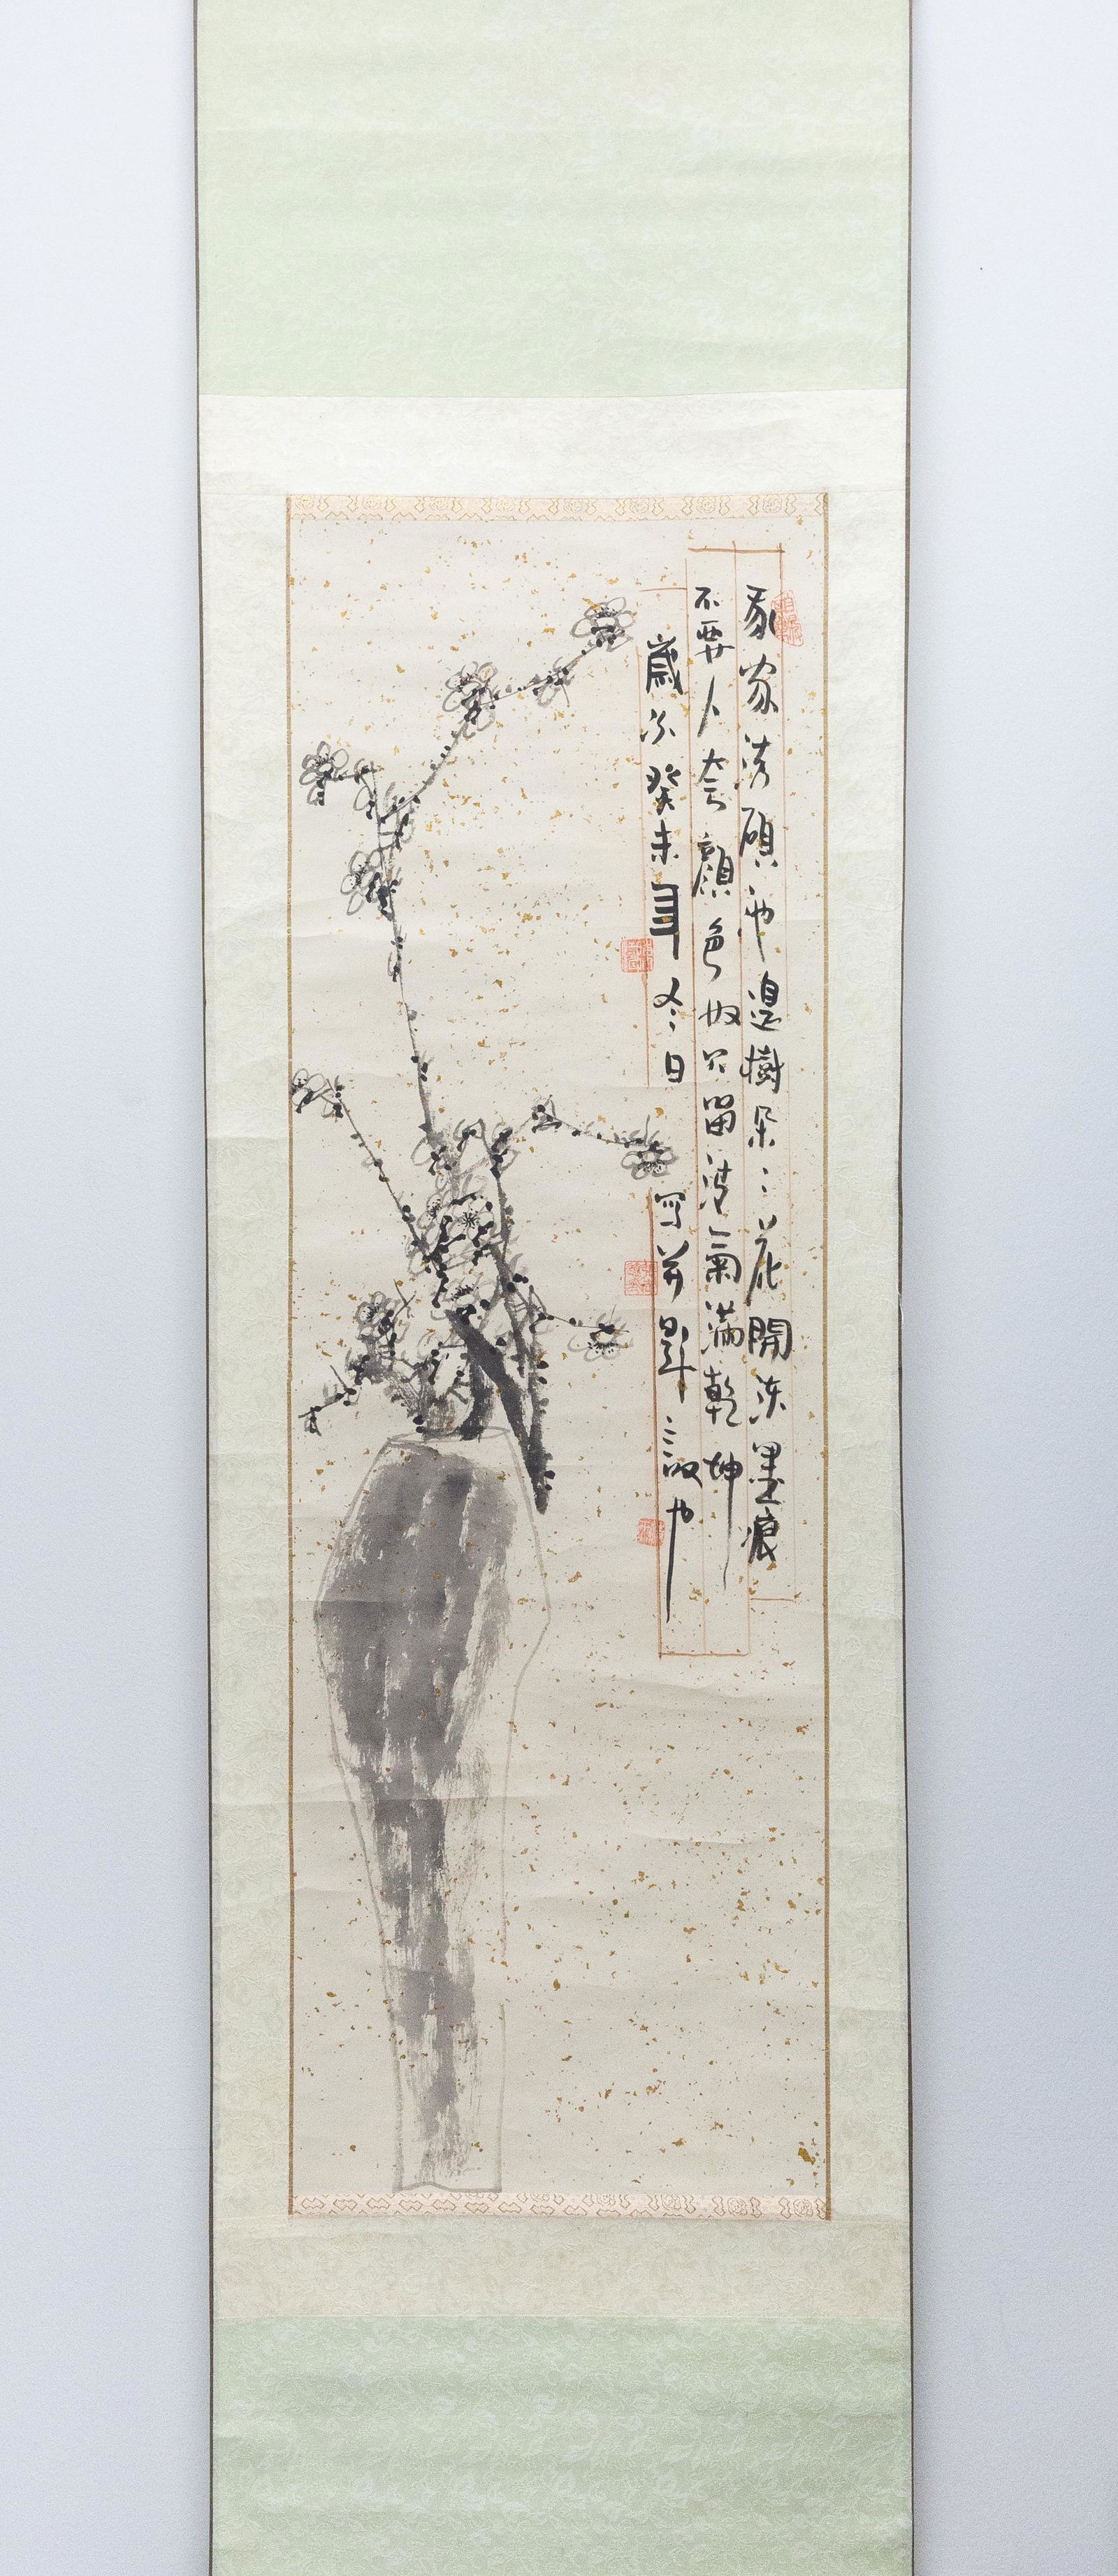 我家洗硯池邊樹朵〻花開淡墨痕
不要人夸顏色好只留清氣滿乾坤
歲次癸未年冬日
寫並題